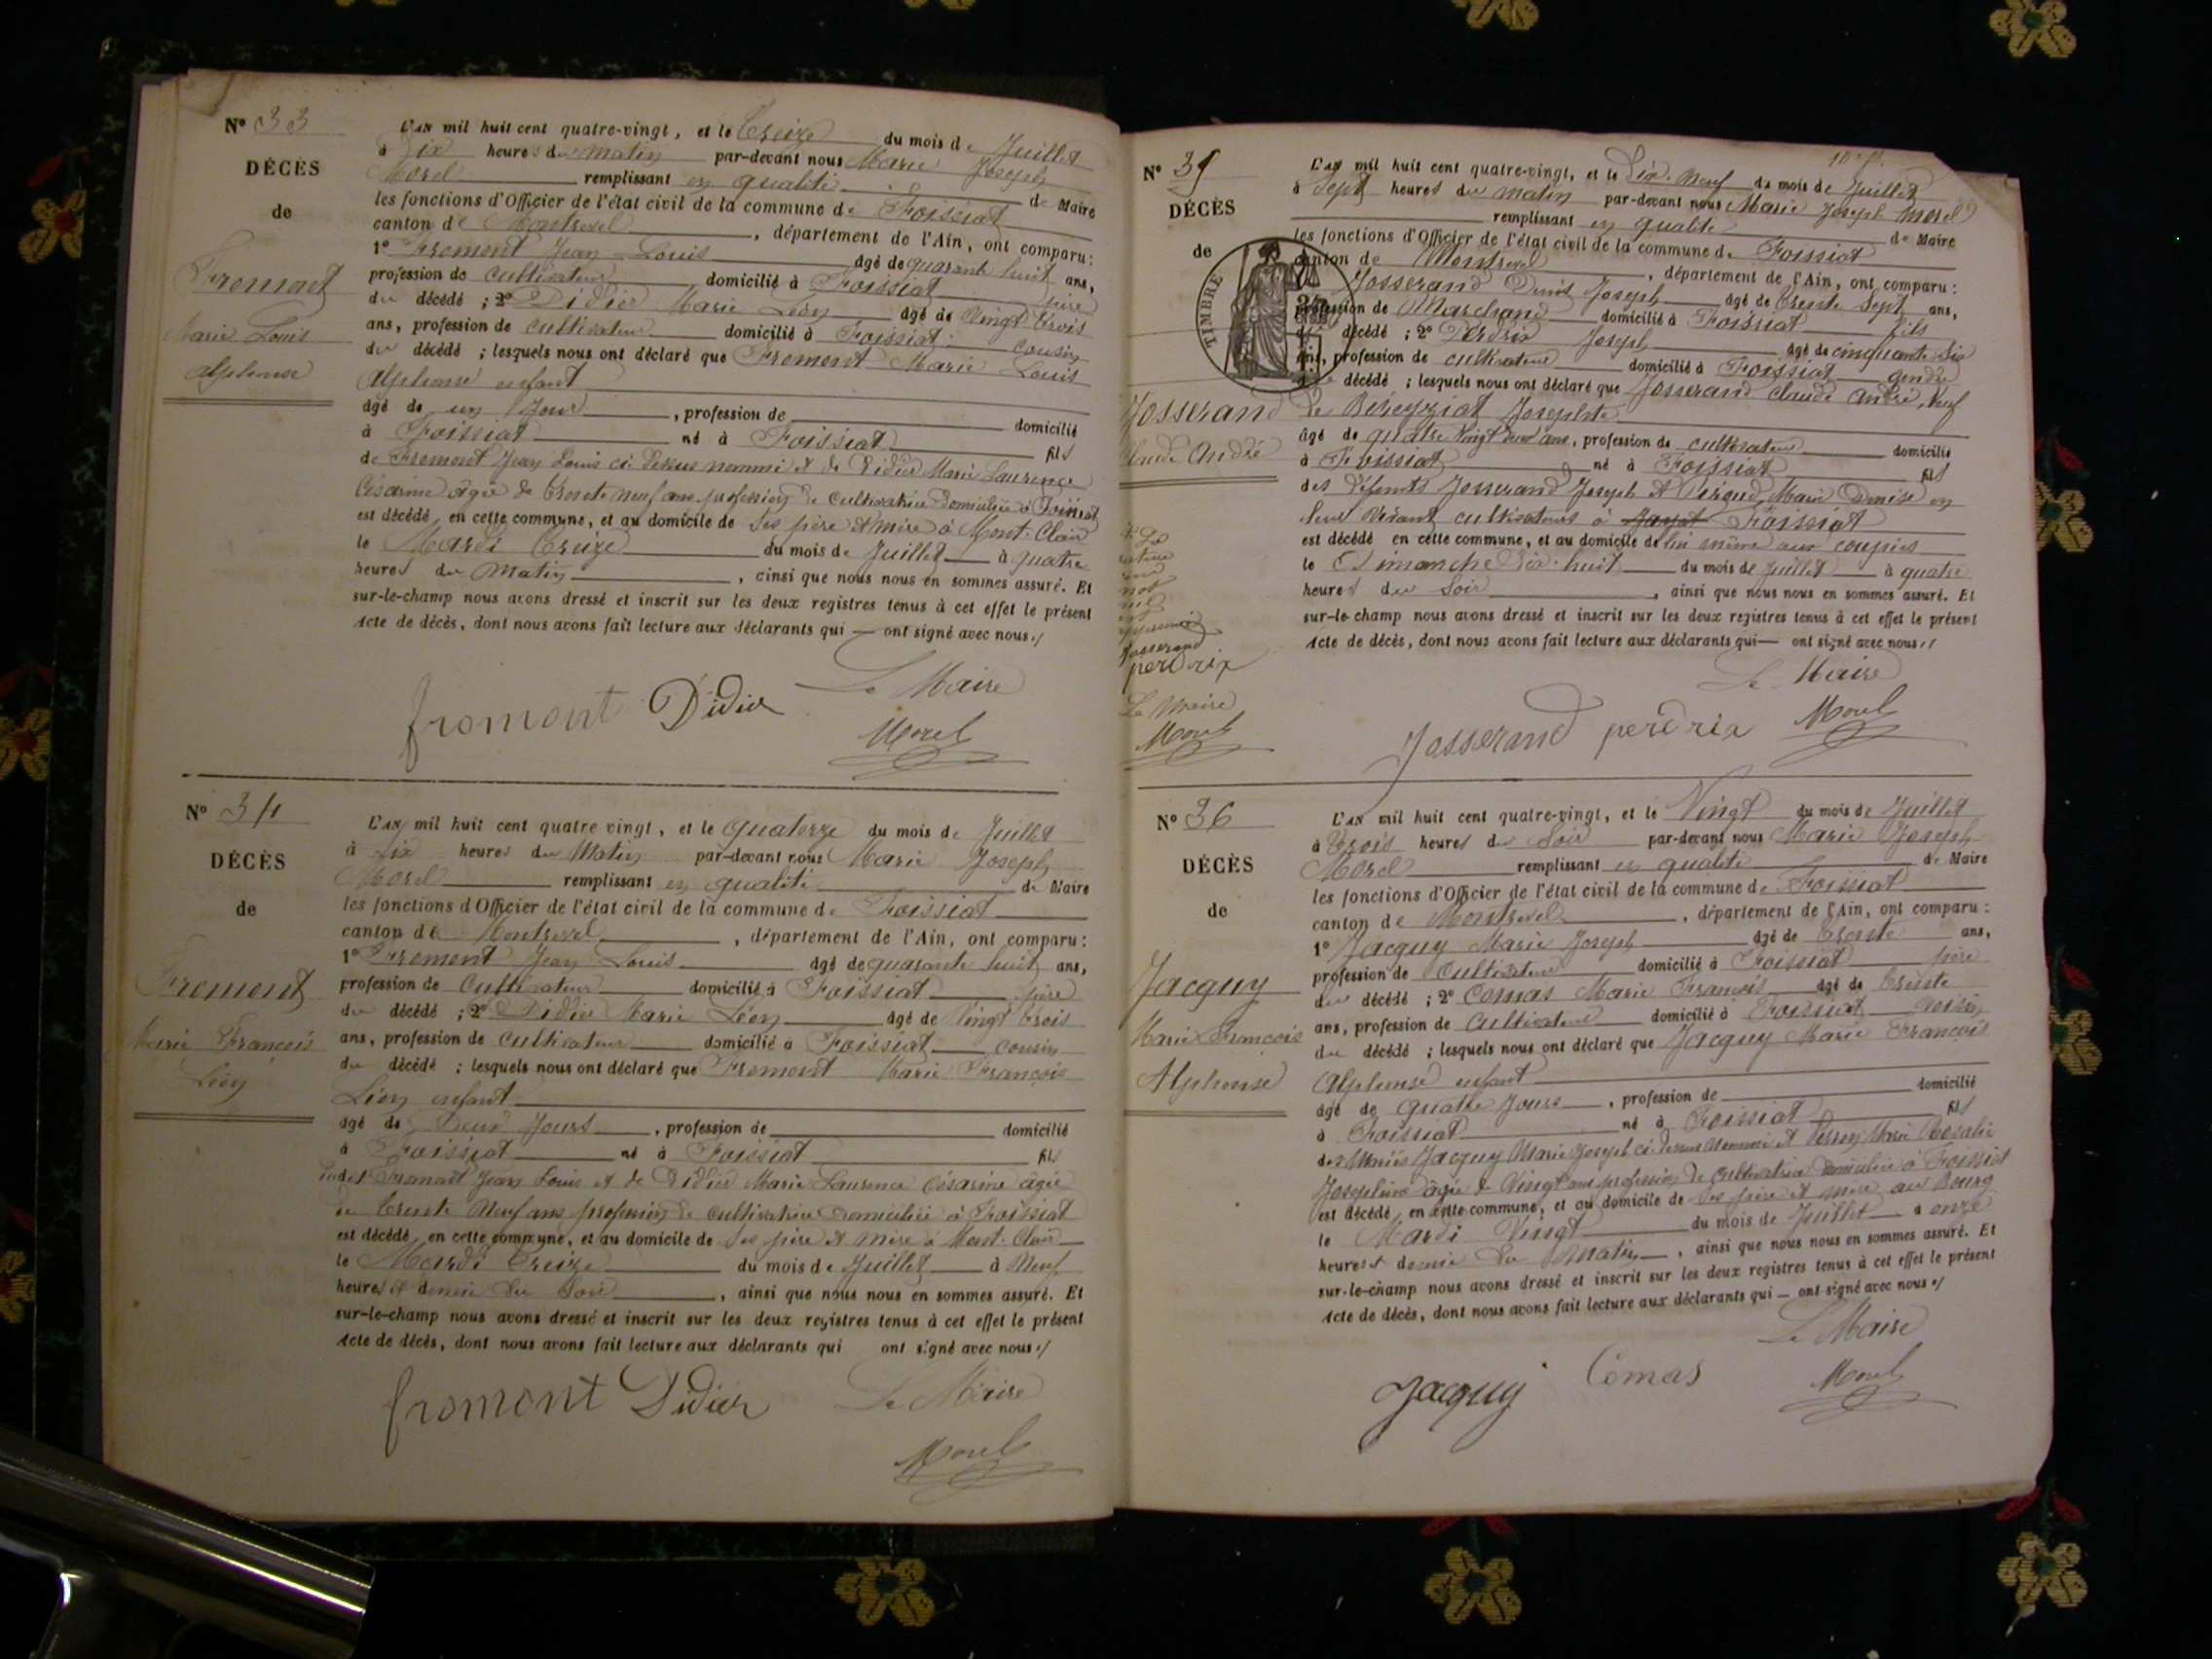 Nº 33
DÉCÈS
de
Fremont
Marie Louis
Alphonse
L'an mil huit cent quatre-vingt, et le Treize du mois de Juillet
à Dix heures du matin par-devant nous Marie Joseph
Morel remplissant en qualité de Maire
les fonctions d'Officier de l'état civil de la commune de Foissiat
canton de Montrevel, département de l'Ain, ont comparu :
1º Fremont Jean Louis âgé de quarante huit ans,
profession de cultivateur domicilié à Foissiat père
du décédé ; 2º Didier Marie Léon âgé de Vingt trois
ans, profession de cultivateur domicilié à Foissiat cousin
du décédé ; lesquels nous ont déclaré que Fremont Marie Louis
Alphonse enfant
âgé de un Jour, profession de domicilié
à Foissiat né à Foissiat fils
de Fremont Jean Louis ci dessus nommé et de Didier Marie Laurence
Césarine âgée de trente neuf ans profession de cultivatrice domiciliée à Foissiat
est décédé en cette commune, et au domicile de ses père et mère à Mont-Clair
le Mardi treize du mois de Juillet à quatre
heures du Matin, ainsi que nous nous en sommes assuré. Et
sur-le-champ nous avons dressé et inscrit sur les deux registres tenus à cet effet le présent
acte de décès, dont nous avons fait lecture aux déclarants qui — ont signé avec nous ./
Le Maire
fromont Didier
Morel
Nº 34
DÉCÈS
de
Fremont
Marie François
Léon
L'an mil huit cent quatre vingt, et le quatorze du mois de Juillet
à Six heures du Matin par-devant nous Marie Joseph
Morel remplissant en qualité de Maire
les fonctions d'Officier de l'état civil de la commune de Foissiat
canton de Montrevel, département de l'Ain, ont comparu :
1º Fremont Jean Louis âgé de quarante huit ans,
profession de Cultivateur domicilié à Foissiat père
du décédé ; 2º Didier Marie Léon âgé de Vingt trois
ans, profession de cultivateur domicilié à Foissiat cousin
du décédé ; lesquels nous ont déclaré que Fremont Marie François
Léon enfant
âgé de Deux Jours, profession de domicilié
à Foissiat né à Foissiat fils
de Fremont Jean Louis et de Didier Marie Laurence Césarine âgée
de trente Neuf ans profession de cultivatrice domiciliée à Foissiat
est décédé en cette commune, et au domicile de ses père et mère à Mont-Clair
le Mardi treize du mois de Juillet à Neuf
heures et demie du Soir, ainsi que nous nous en sommes assuré. Et
sur-le-champ nous avons dressé et inscrit sur les deux registres tenus à cet effet le présent
acte de décès, dont nous avons fait lecture aux déclarants qui ont signé avec nous ./
fromont Didier Le Maire
Morel
Nº 35
DÉCÈS
de
TIMBRE
Josserand
Claude André
Josserand
perdrix
Le Maire
Morel
L'an mil huit cent quatre-vingt, et le Dix-Neuf du mois de Juillet
à Sept heures du matin par-devant nous Marie Joseph Morel
remplissant en qualité de Maire
les fonctions d'Officier de l'état civil de la commune de Foissiat
canton de Montrevel, département de l'Ain, ont comparu :
Josserand Denis Joseph âgé de trente Sept ans,
profession de Marchand domicilié à Foissiat fils
du décédé ; 2º Perdrix Joseph âgé de cinquante six
ans, profession de cultivateur domicilié à Foissiat gendre
du décédé ; lesquels nous ont déclaré que Josserand Claude André, Veuf
de Béreyziat Josephte
âgé de quatre Vingt deux ans, profession de cultivateur domicilié
à Foissiat né à Foissiat fils
des défunts Josserand Joseph et Marie Denise en
leur vivant cultivateurs à Jayat Foissiat
est décédé en cette commune, et au domicile de lui même aux coupiés
le Dimanche Dix-huit du mois de Juillet à quatre
heures du Soir, ainsi que nous nous en sommes assuré. Et
sur-le-champ nous avons dressé et inscrit sur les deux registres tenus à cet effet le présent
acte de décès, dont nous avons fait lecture aux déclarants qui — ont signé avec nous
Le Maire
Josserand perdrix Morel
Nº 36
DÉCÈS
de
Jacquy
Marie François
Alphonse
L'an mil huit cent quatre-vingt, et le Vingt du mois de Juillet
à trois heures du Soir par-devant nous Marie Joseph
Morel remplissant en qualité de Maire
les fonctions d'Officier de l'état civil de la commune de Foissiat
canton de Montrevel, département de l'Ain, ont comparu :
1º Jacquy Marie Joseph âgé de trente ans,
profession de Cultivateur domicilié à Foissiat père
du décédé ; 2º Comas Marie François âgé de trente
ans, profession de Cultivateur domicilié à Foissiat voisin
du décédé ; lesquels nous ont déclaré que Jacquy Marie François
Alphonse enfant
âgé de quatre Jours, profession de domicilié
à Foissiat né à Foissiat fils
des Mariés Jacquy Marie Joseph ci-dessus Nommé et Marie Rosalie
Josephine âgée de Vingt ans profession de cultivatrice domiciliée à Foissiat
est décédé en cette commune, et au domicile de ses père et mère au Bourg
le Mardi Vingt du mois de Juillet à onze
heures et demie du Matin, ainsi que nous nous en sommes assuré. Et
sur-le-champ nous avons dressé et inscrit sur les deux registres tenus à cet effet le présent
acte de décès, dont nous avons fait lecture aux déclarants qui — ont signé avec nous ./
Le Maire
Jacquy Comas Morel